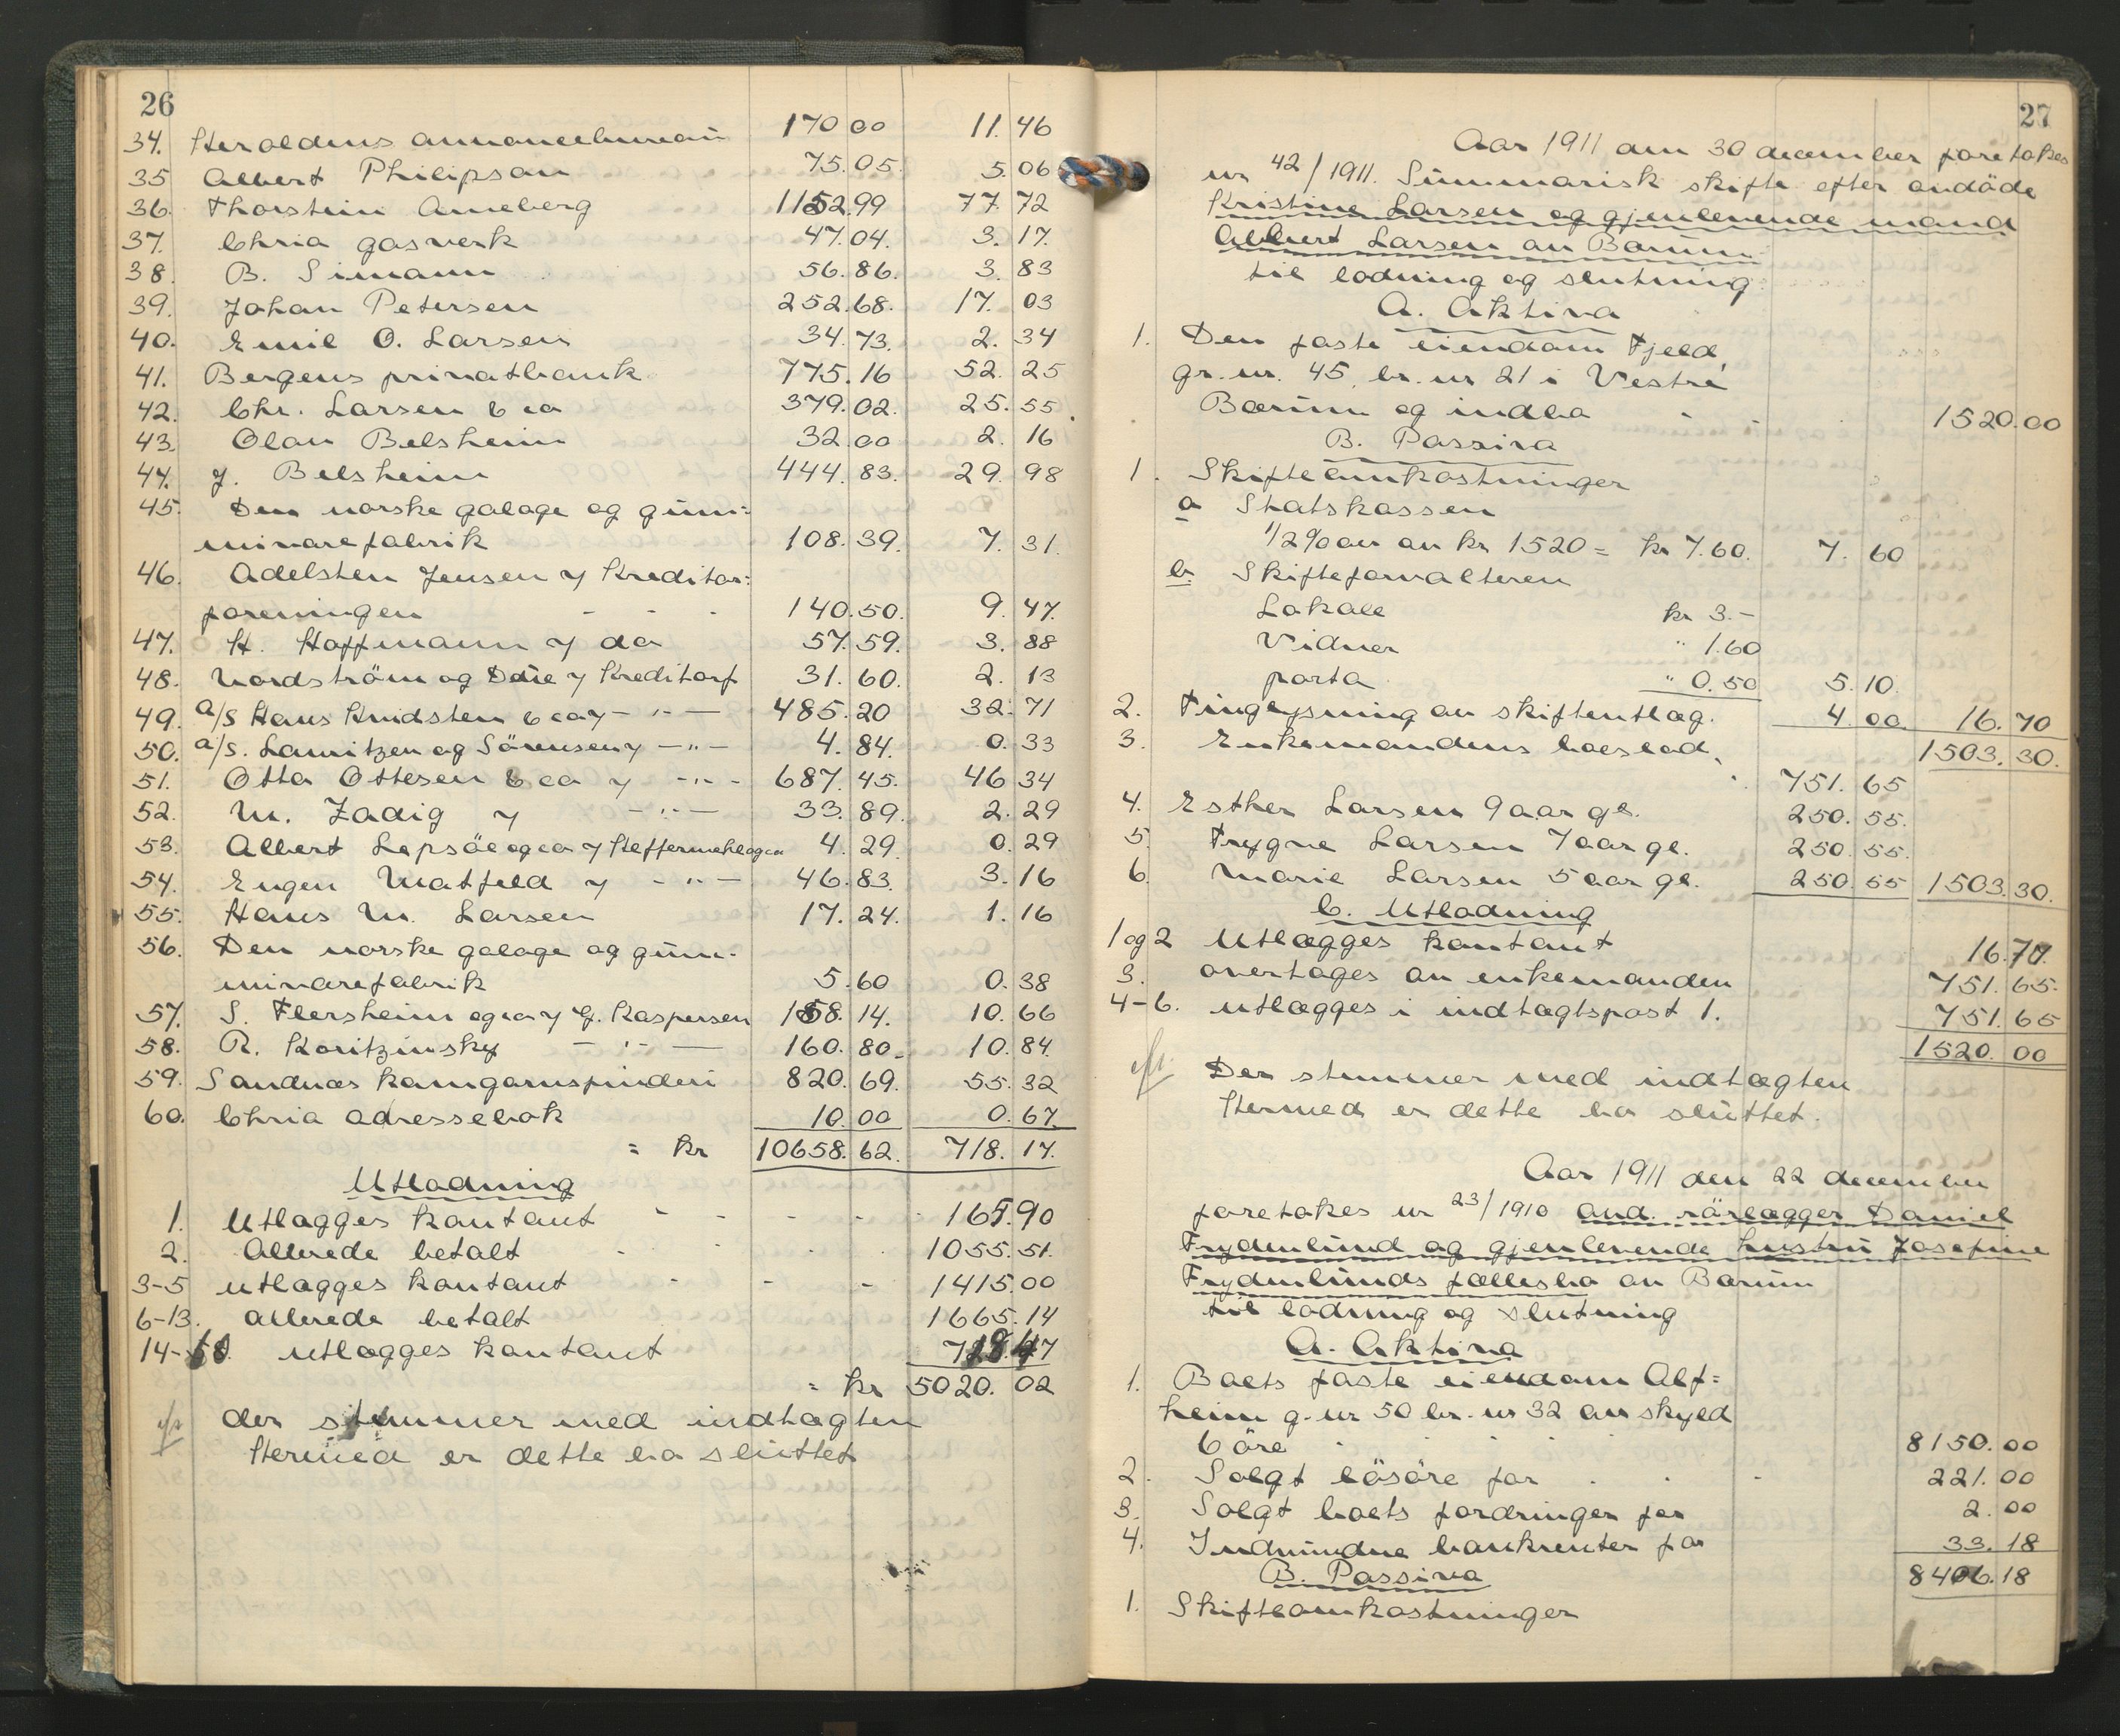 26
34. Heroldens annoncebureau 170 00 11. 46
35 Albert Philipson 75. 05. 5. 06
36. Thorstein Anneberg 1152. 99 77. 72
37. Chria gasverk 47. 04. 3. 17.
38. B. Simann 56. 86. 3. 83
39. Johan Petersen 252. 68. 17. 03
40. Emil O. Larsen 34. 73. 2. 34
41. Bergens privatbank 775. 16 52. 25
42. Chr. Larsen & co 379. 02. 25. 55
43. Olav Belsheim 32. 00 2. 16
44. J. Belsheim 444. 83. 29. 98
45. Den norske galoge og gum=
mivarefabrik 108. 39. 7. 31.
46. Adelsten Jensen v/ Kreditor=
foreningen - - - 140. 50. 9. 47.
47. H. Hoffmann v/ do 57. 59. 3. 88
48. Nordström og Due v/ Kreditorf 31. 60. 2. 13
49. a/s Hans Knudsten & co v/ - " - 485. 20 32. 71
50. a/s. Lauritzen og Sörensen v/ - " - 4. 84. 0. 33
51. Otto Ottesen & co v/ - " - 687. 45. 46 34
52. M. Zadig v/ - " - 33. 89. 2. 29
53. Albert Lepsöe og co v/ Steffermehl og co 4. 29. 0. 29
54. Eugen Matfeld v/ - " - 46. 83. 3. 16
55. Hans M. Larsen 17. 24. 1. 16
56. Den norske galoge og gum-
mivarefabrik 5. 60 0. 38
57. S. Flersheim og co v/ G. Kaspersen 158. 14. 10. 66
58. R. Koritzinsky - " - 160. 80. 10. 84.
59. Sandnæs kamgarnspinderi 820. 69. 55. 32
60. Chria adressebok 10. 00 0. 67.
= kr 10658. 62. 718. 17.
Utlodning
1. Utlægges kontant - - - - 165. 90
2. Allerede betalt - - - 1055. 51.
3-5 utlægges kontant - - - 1415. 00
6-13. allerede betalt 1665. 14
14-60. utlægges kontant 718. 47
= kr 5020. 02
der stemmer med indtægten
Hermed er dette bo sluttet
27
Aar 1911 den 30 december foretokes
nr 42/1911. Summarisk skifte efter avdöde
Kristine Larsen og gjenlevende mand
Albert Larsen av Bærum
til lodning og slutning.
A. Aktiva
1. Den faste eiendom Fjeld,
gr. nr. 45, br. nr 21 i Vestre
Bærum og indbo - - 1520. 00
B. Passiva
1. Skifteomkostninger
a Statskassen
1/2 % av av kr 1520 = kr 7. 60. 7. 60
b Skifteforvalteren
Lokale kr 3. -
Vidner " 1. 60
porto " 0. 50 5. 10.
2. Tinglysning av skifteutlæg. 4. 00 16. 70
3. Enkemandens boeslod. 1503. 30.
751. 65
4. Esther Larsen 9 aar gl. 250. 55.
5. Trygve Larsen 7 aar gl. 250. 55.
6. Marie Larsen 5 aar gl. 250. 55 1503. 30.
C. Utlodning
1 og 2 Utlægges kontant 16. 70.
3. overtages av enkemanden 751. 65.
4-6. utlægges i indtægtspost 1. 751. 65
1520. 00
Der stemmer med indtægten
Hermed er dette bo sluttet.
Aar 1911 den 22 december
foretokes nr 23/1910 avd. rörlægger Daniel
Frydenlund og gjenlevende hustru Josefine
Frydenlunds fællesbo av Bærum
til lodning og slutning
A. Aktiva
1. Boets faste eiendom Alf=
heim g. nr 50 br. nr 32 av skyld
6 öre - - - - 8150. 00
2. Solgt lösöre for - - - 221. 00
3. Solgt boets fordringer for 2. 00
4. Indvundne bankrenter for 33. 18
B. Passiva 8406. 18
1. Skifteomkostninger